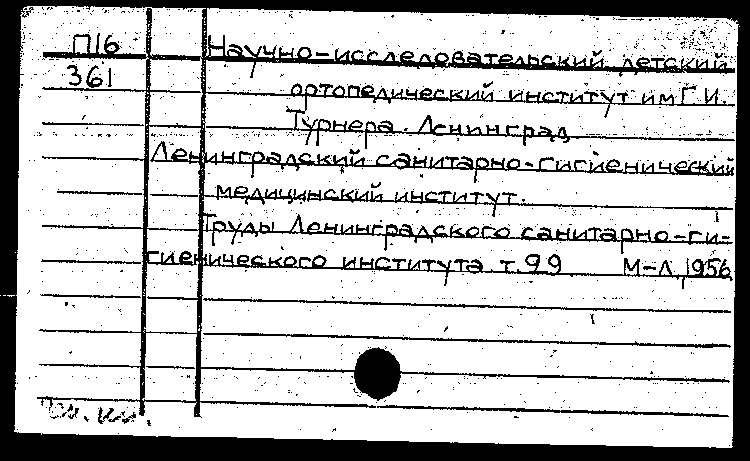 П16 Научно-исследовательский детский
361 ортопедический институт им Г.И.
Турнера. Ленинград
Ленинградский санитарно-гигиенический
медицинский институт.
Труды Ленинградского санитарно-ги-
гиенического института т. 99 М-Л, 1956